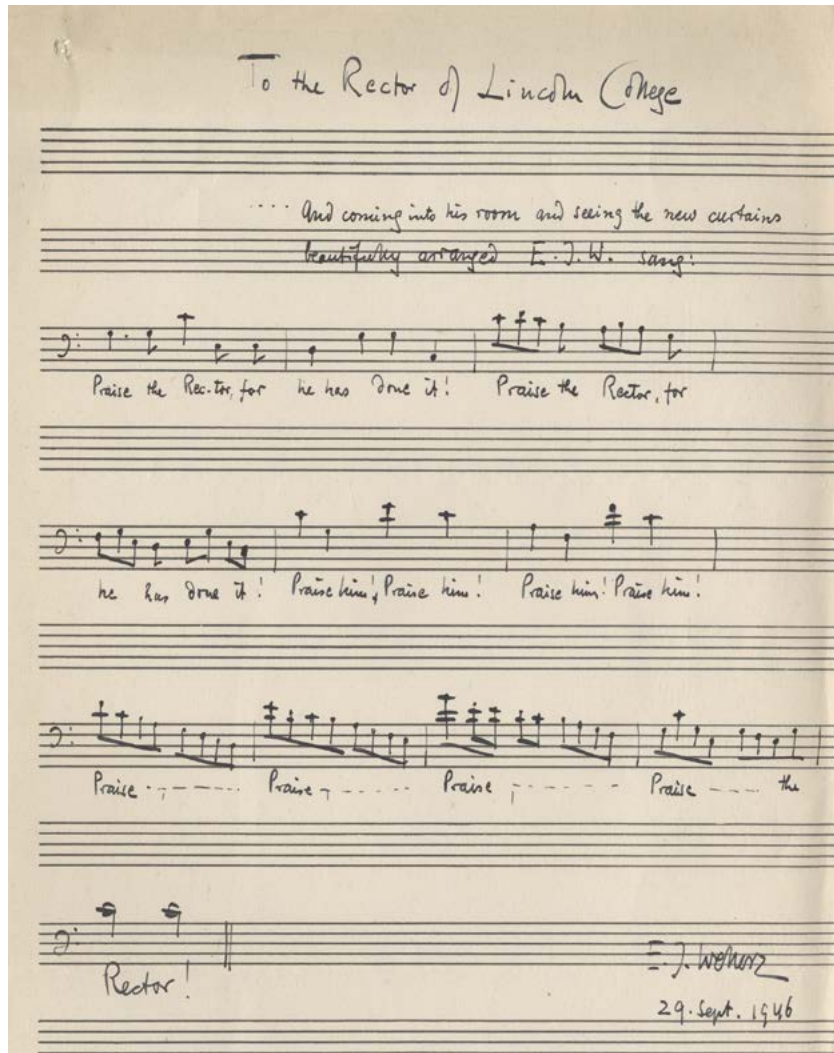 To the Rector of Lincoln College
.... And coming into his room and seeing the new curtains
beautifully arranged E.J.W. sang:
Praise the Rec-tor, for he has done it! Praise the Rector, for
he has done it! Praise him! Praise him! Praise him! Praise him!
Praise ------ Praise ------ Praise ------ Praise ---- the
Rector!
E.J.
29. Sept. 1946